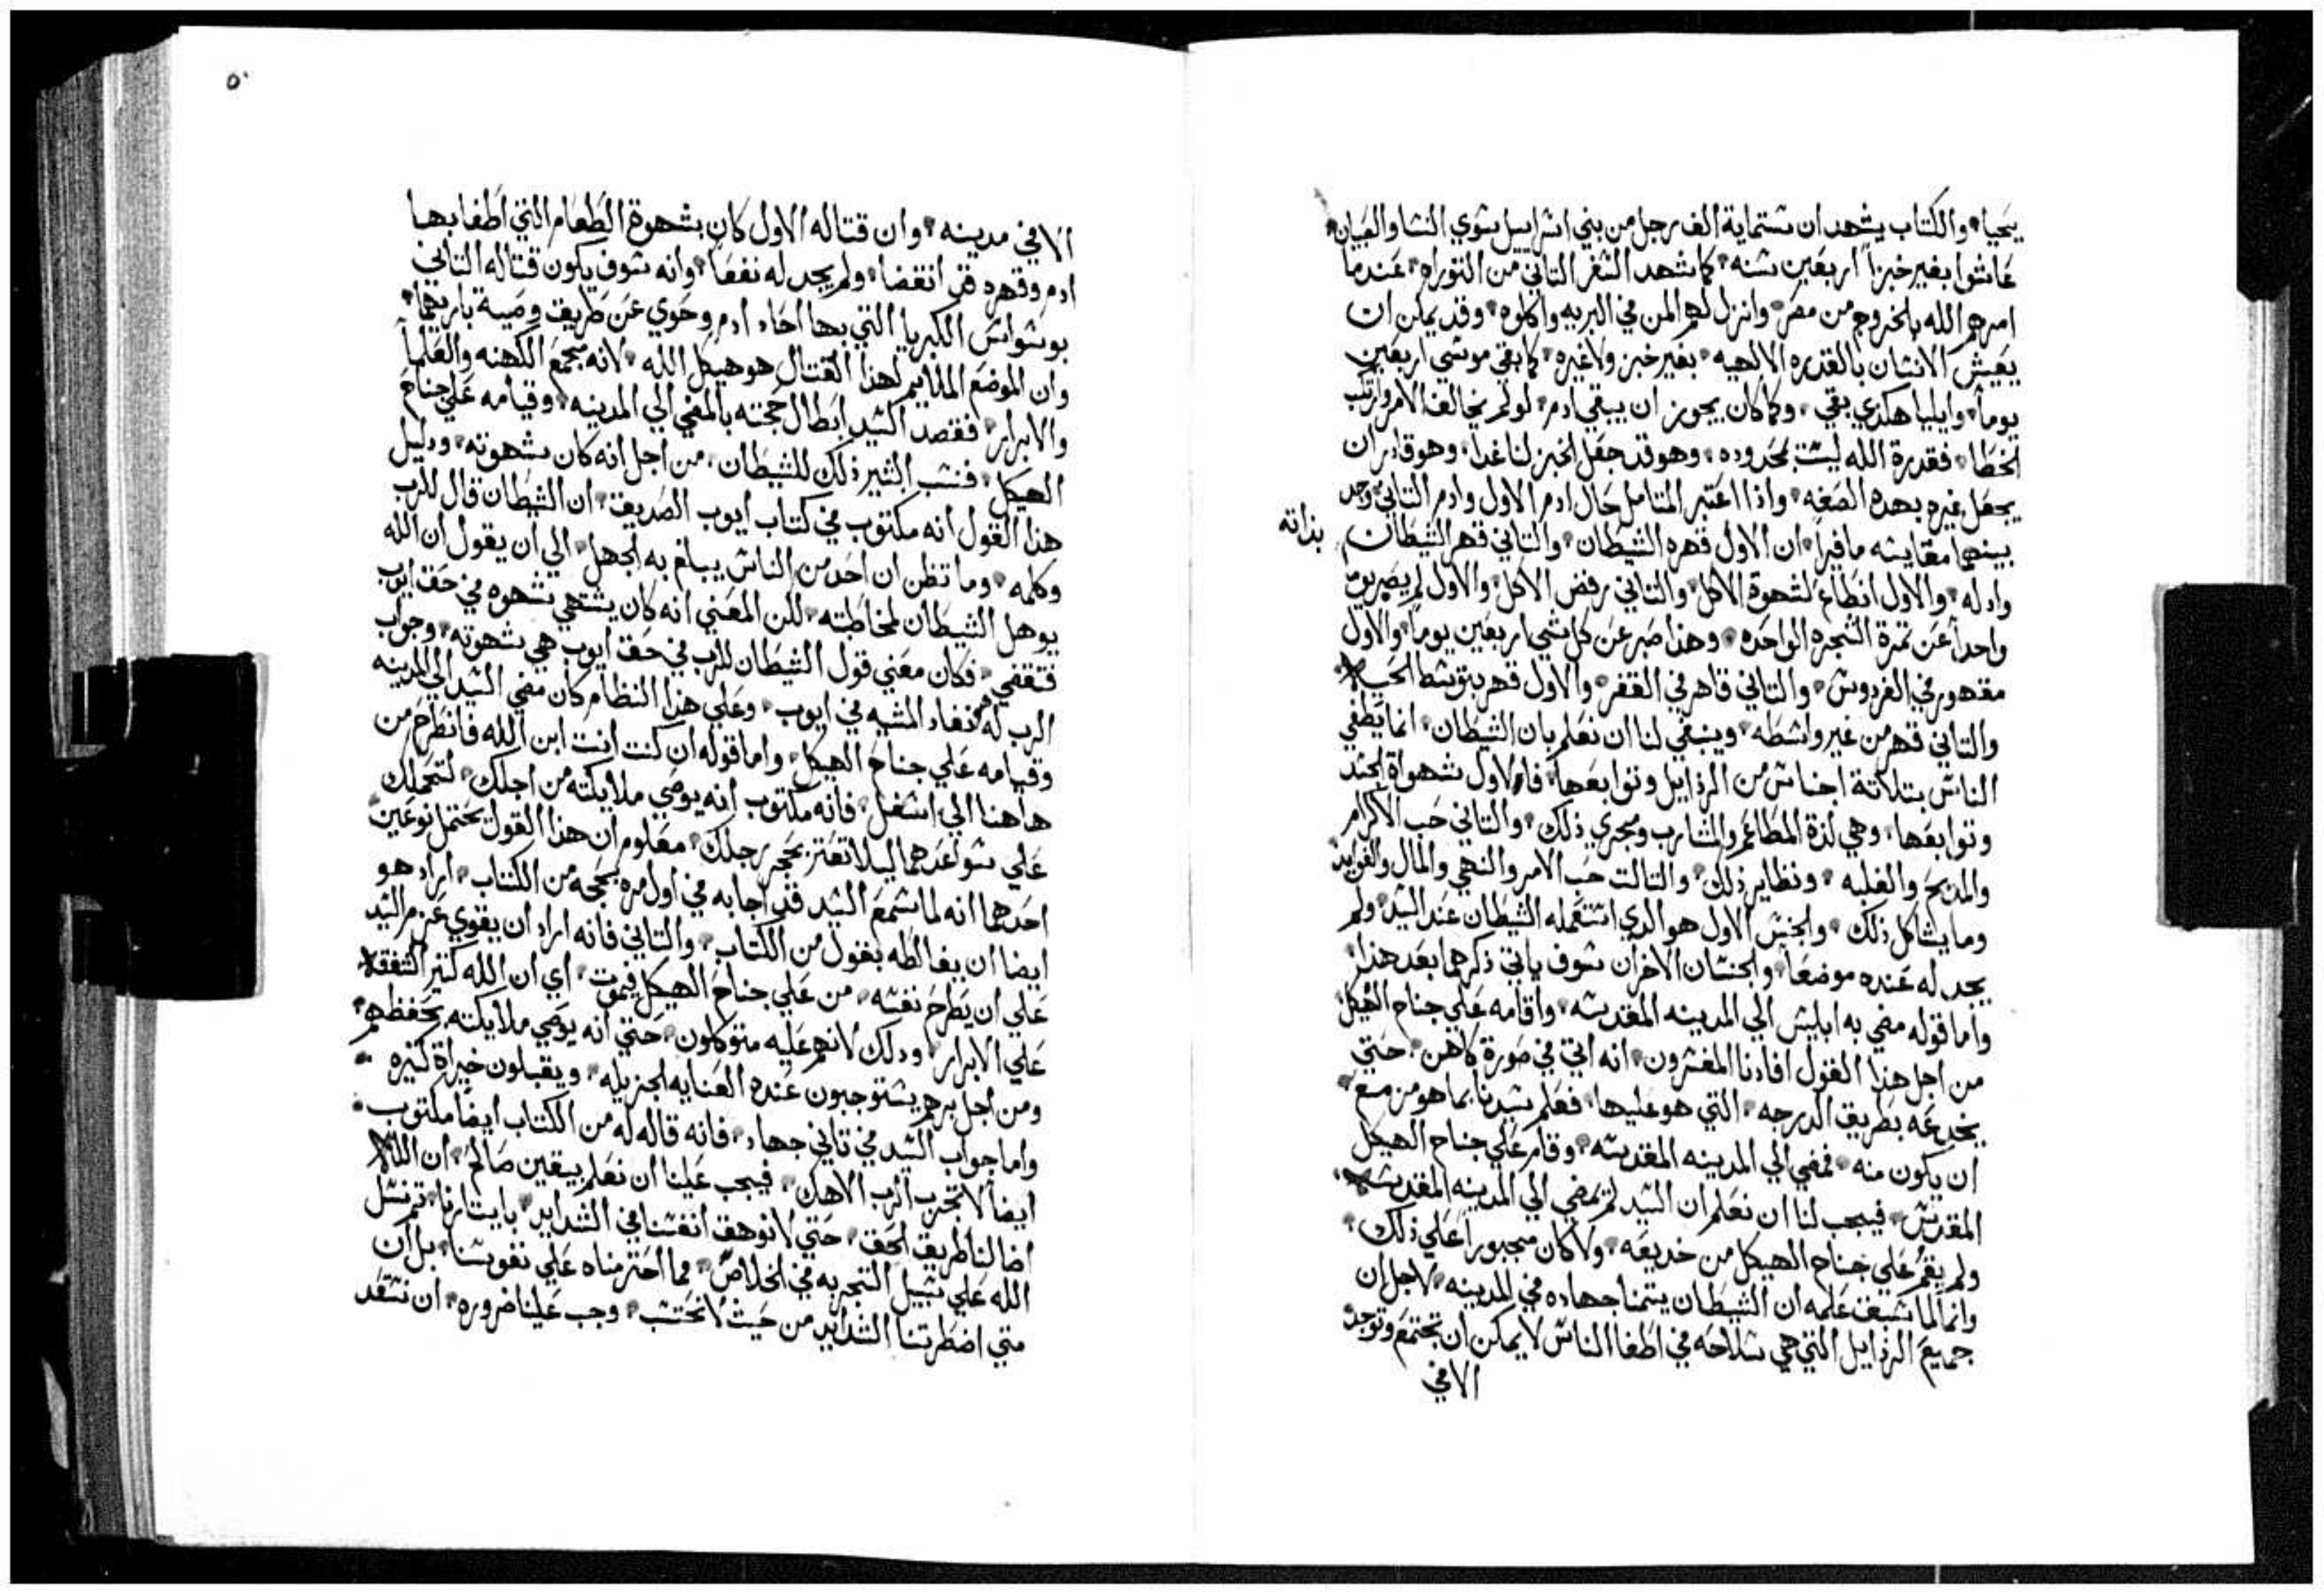 يحيا والكتاب يشهد ان ستماية الف رجل من بني اسراييل سوي النسا والصبيان
عاشوا بغير خبزاً اربعين سنه كما شهد السفر التاني من التوراه عندما
امرهم الله بالخروج من مصر وانزل لهم المن في البريه واكلوه وقد يمكن ان
يعيش الانسان بالقدره الالهيه بغير خبز ولا غيره كما بقي موسي اربعين
يوماً وايليا هكدي بقي وكما كان يجوز ان يبقي ادم لو لم يخالف الامر وارتكب
الخطا فقدرة الله ليست بمحدوده وهو قد جعل الخبز لنا غدا وهو قادر ان
يجعل غيره بهده الصفه واذا اعتبر المتامل حال ادم الاول وادم التاني وجد
بينهما مقايسه ما فيراً ان الاول قهره الشيطان والتاني قهر الشيطان بذاته
واد له والاول انطاع لشهوة الاكل والتاني رفض الاكل والاول لم يصبر يوم
واحداً عن تمرة الشجره الواحده وهذا صبر عن كل شي اربعين يوماً والاول
مقهور في الفردوس والتاني قاهر في القفر والاول قهر بتوسط الحيه
والتاني قهر من غير واسطه وينبغي لنا ان نعلم بان الشيطان انما يطغي
الناس بتلاتة اجناس من الرذايل وتوابعها فالاول شهواة الجسد
وتوابعها وهي لذة المطاعم والمشارب ومجري ذلك والتاني حب الاكرام
والمديح والغلبه ونظاير ذلك والتالت حب الامر والنهي والمال والفوايد
وما يشاكل ذلك والجنس الاول هو الدي استعمله الشيطان عند السيد ولم
يجد له عنده موضعاً والجنسان الاخران سوف ياتي ذكرهما بعد هذا
واما قوله مضي به ابليس الي المدينه المقدسه واقامه علي جناح الهيكل
من اجل هذا القول افادنا المفسرون انه اتي في صورة كاهن حتي
يخدعه بطريق الدرجه التي هو عليها فعلم سيدنا بما هو مزمع
ان يكون منه فمضي الي المدينه المقدسه وقام علي جناح الهيكل
المقدس فيجب لنا ان نعلم ان السيد لم يمضي الي المدينه المقدسه
ولم يقم علي جناح الهيكل من خديعه ولا كان مجبوراً علي ذلك
وانما لما سبق علمه ان الشيطان يتمنا جهاده في المدينه لاجل ان
جميع الرذايل التي هي سلاحه في اطغا الناس لا يمكن ان تجتمع وتوجد
الا في
٥٠
الا في مدينه وان قتاله الاول كان بشهوة الطعام التي اطغا بها
ادم وقهره قد انقضا ولم يجد له نفعاً وانه سوف يكون قتاله التاني
بوسواس الكبريا التي بها احاد ادم وحوي عن طريق وصية باريهما
وان الموضع الملايم لهذا القتال هو هيكل الله لانه مجمع الكهنه والعلما
والابرار فقصد السيد ابطال حجته بالمضي الي المدينه وقيامه علي جناح
الهيكل فنسب البشير ذلك للشيطان من اجل انه كان شهوته ودليل
هذا القول انه مكتوب في كتاب ايوب الصديق ان الشيطان قال للرب
وكلمه وما تظن ان احد من الناس يبلغ به الجهل الي ان يقول ان الله
يوهل الشيطان لمخاطبته لكن المعني انه كان يشتهي شهوه في حق ايوب
فتقضي فكان معني قول الشيطان للرب في حق ايوب هي شهوته وجواب
الرب له هو نفاد المشيه في ايوب وعلي هذا النظام كان مضي السيد الي المدينه
وقيامه علي جناح الهيكل واما قوله ان كنت انت ابن الله فانطرح من
هاهنا الي اسفل فانه مكتوب انه يوصي ملايكته من اجلك لتحملك
علي سواعدهما ليلا تعتر بحجر رجلك معلوم ان هذا القول يحتمل نوعين
احدهما انه لما سمع السيد قد اجابه في اول مره بحجه من الكتاب اراد هو
ايضا ان يغالطه بقول من الكتاب والتاني فانه اراد ان يقوي عزم السيد
علي ان يطرح نفسه من علي جناح الهيكل فيموت اي ان الله كتير الشفقه
علي الابرار ودلك لانهم عليه متوكلون حتي انه يوصي ملايكته بحفظهم
ومن اجل برهم يستوجبون عنده العنايه الجزيله ويقبلون خيراة كتيره
واما جواب السيد في تاني جهاد فانه قاله له من الكتاب ايضاً مكتوب
ايضاً لا تجرب الرب الاهك فيجب علينا ان نعلم بيقين صالح ان الله
اضا لنا طريق الحق حتي لا نوهق انفسنا في الشدايد بايتارنا تم نسل
الله علي سبيل التجربه في الخلاص مما احترمناه علي نفوسنا بل ان
متي اضطرتنا الشدايد من حيث لا نحتسب وجب علينا ضروره ان نستقد